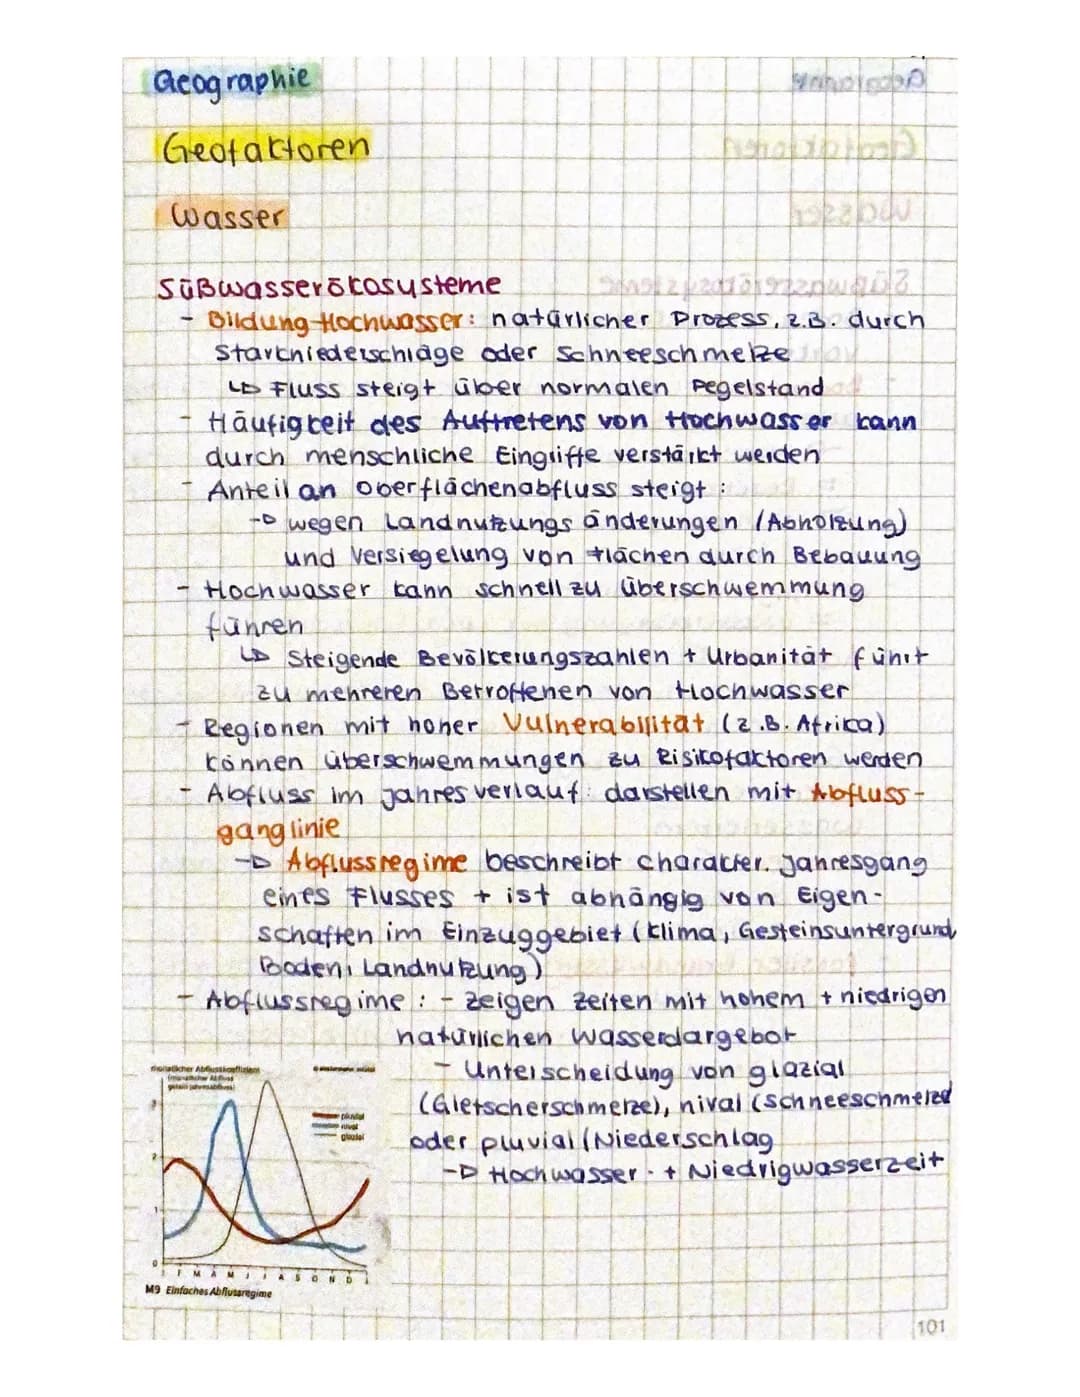 Geographie
Geofaktoren
Wasser
Süßwasserökosysteme
- Bildung Hochwasser: natürlicher Prozess, z.B. durch
Starkniederschläge oder Schneeschmelze
↳ Fluss steigt über normalen Pegelstand
- Häufigkeit des Auftretens von Hochwasser kann
durch menschliche Eingriffe verstärkt werden
- Anteil an Oberflächenabfluss steigt :
→ wegen Landnutzungsänderungen (Abholzung)
und Versiegelung von Flächen durch Bebauung
- Hochwasser kann schnell zu Überschwemmung
führen
↳ Steigende Bevölkerungszahlen + Urbanität führt
zu mehreren Betroffenen von Hochwasser
- Regionen mit hoher Vulnerabilität (z.B. Afrika)
können Überschwemmungen zu Risikofaktoren werden
- Abfluss im Jahresverlauf: darstellen mit Abfluss-
ganglinie
→ Abflussregime beschreibt charakter. Jahresgang
eines Flusses + ist abhängig von Eigen-
schaften im Einzuggebiet (Klima, Gesteinsuntergrund
Boden, Landnutzung)
- Abflussregime : - zeigen Zeiten mit hohem + niedrigen
natürlichen Wasserdargebot
- Unterscheidung von glazial
(Gletscherschmelze), nival (Schneeschmelze
oder pluvial (Niederschlag
→ Hochwasser- + Niedrigwasserzeit
monatlicher Abflusskoeffizient
pluvial
nival
glazial
3
2
1
0
J F M A M J J A S O N D J
M9 Einfaches Abflussregime
101